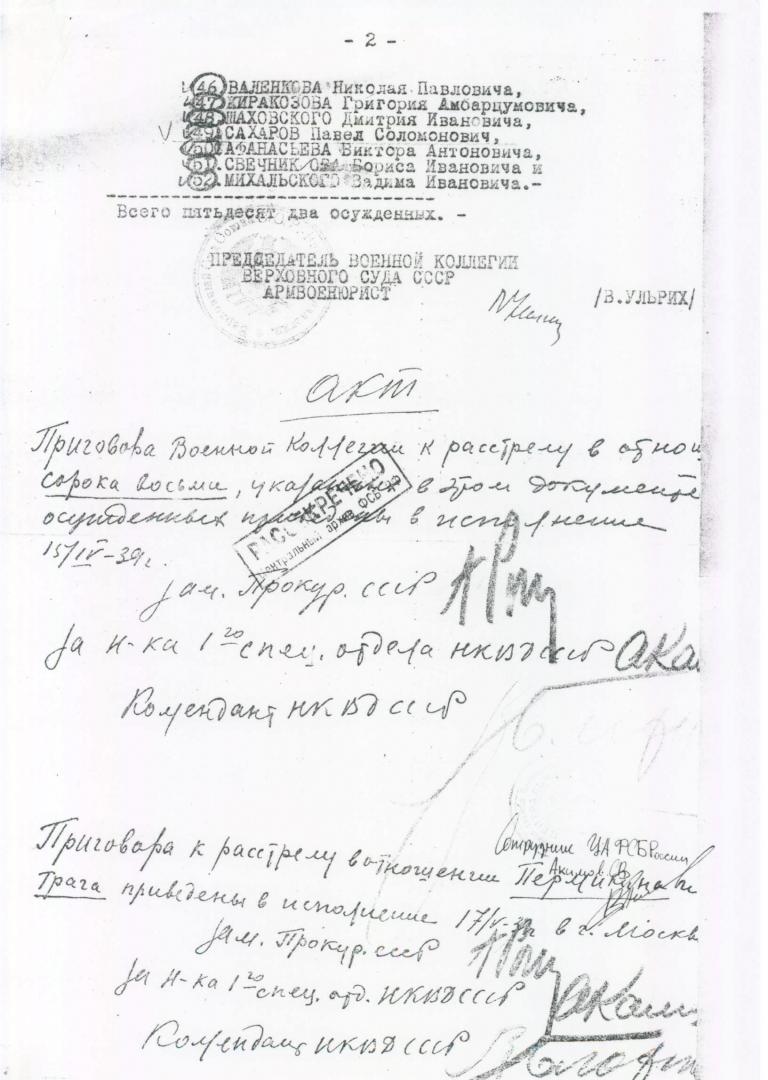 - 2 -
46. ВАЛЕНКОВА Николая Павловича,
47. КИРАКОЗОВА Григория Амбарцумовича,
48. ШАХОВСКОГО Дмитрия Ивановича,
V 49. САХАРОВ Павел Соломонович,
50. АФАНАСЬЕВА Виктора Антоновича,
51. СВЕЧНИКОВА Бориса Ивановича и
52. МИХАЛЬСКОГО Вадима Ивановича.-
Всего пятьдесят два осужденных. -
ПРЕДСЕДАТЕЛЬ ВОЕННОЙ КОЛЛЕГИИ
ВЕРХОВНОГО СУДА СССР
АРМВОЕНЮРИСТ
/В.УЛЬРИХ/
акт
Приговора Военной Коллегии к расстрелу в отнош
сорока восьми, в этом документе
осужденных в исполнение
15/IV-39г.
РАССЕКРЕЧЕНО
Центральный архив ФСБ РФ
Зам. Прокур. СССР
За Н-ка 1го спец. отдела НКВД СССР
Комендант НКВД СССР
Сотрудник ЦА ФСБ России
Приговора к расстрелу в отношении Пермикина и
Трага приведены в исполнение 17/ в г. Москв
Зам. Прокур. СССР
За Н-ка 1го спец. отд. НКВД СССР
Комендант НКВД СССР